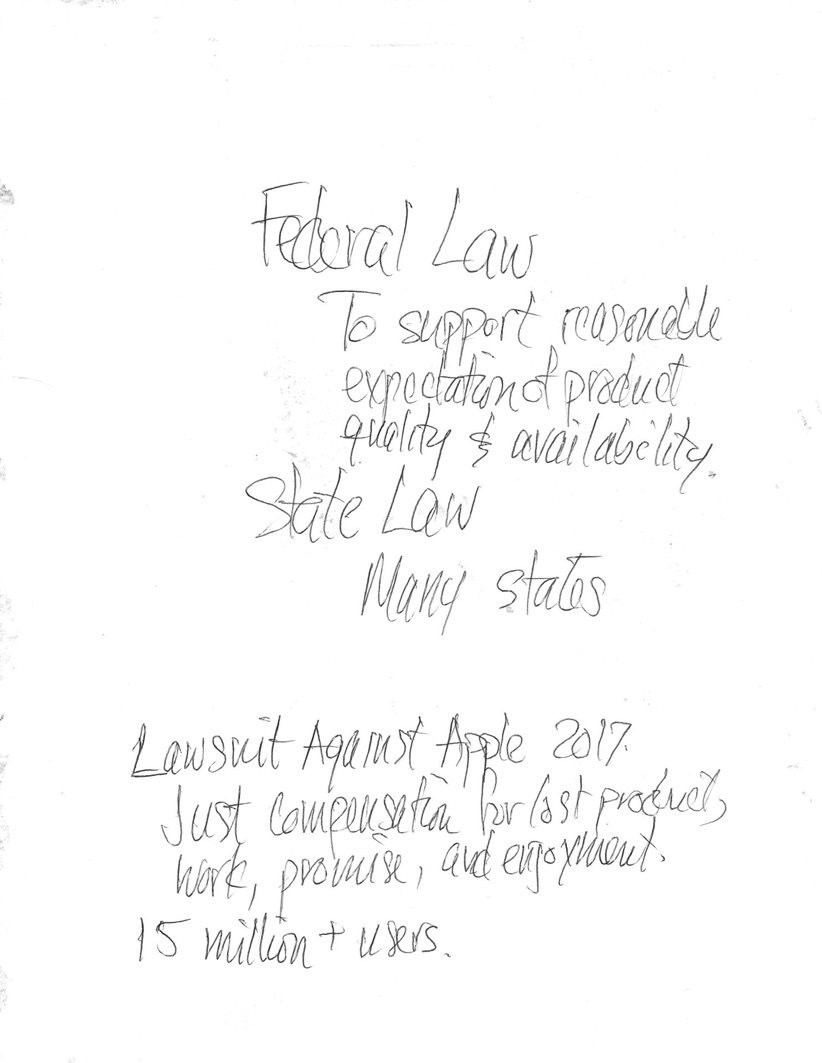 Federal Law
To support reasonable
expectation of product
quality & availability.
State Law
Many states
Lawsuit Against Apple 2017.
Just compensation for lost product,
work, promise, and enjoyment.
15 million + users.